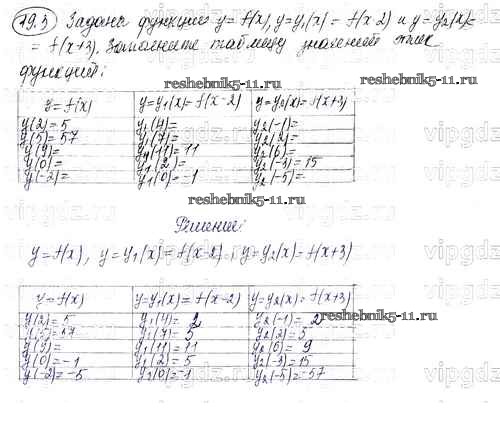 19.3 Задана функция y=f(x), y=y₁(x)=f(x-2) и y=y₂(x)=
=f(x+3). Заполните таблицу значений этих
функций:
reshebnik5-11.ru
y=f(x) y=y₁(x)=f(x-2) y=y₂(x)=f(x+3)
y(2)=5 y₁(4)= y₂(-1)=
y(5)=57 y₁(7)= y₂(2)=
y(9)= y₁(11)=11 y₂(6)=
y(0)= y₁(2)= y₂(-3)=15
y(-2)= y₁(0)=-1 y₂(-5)=
reshebnik5-11.ru
Решение:
y=f(x), y=y₁(x)=f(x-2), y=y₂(x)=f(x+3)
reshebnik5-11.ru
y=f(x) y=y₁(x)=f(x-2) y=y₂(x)=f(x+3)
y(2)=5 y₁(4)=2 y₂(-1)=2
y(5)=57 y₁(7)=5 y₂(2)=5
y(9)= y₁(11)=11 y₂(6)=9
y(0)=-1 y₁(2)=5 y₂(-3)=15
y(-2)=-5 y₂(0)=-1 y₂(-5)=-57
reshebnik5-11.ru
vipgdz